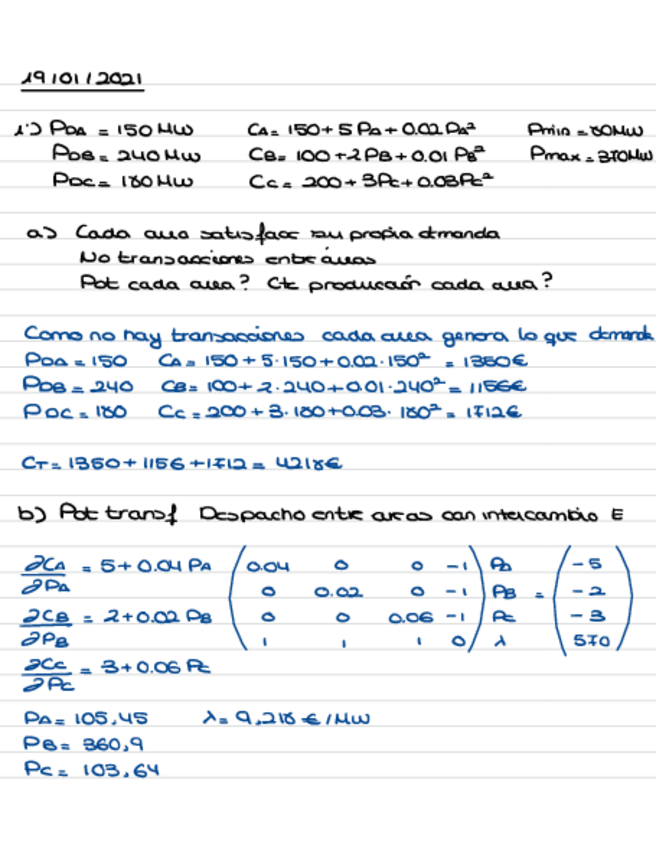 19/01/2021
1º) PDA = 150 MW CA = 150 + 5 PA + 0.02 PA² Pmin = 80 MW
PDB = 240 MW CB = 100 + 2 PB + 0.01 PB² Pmax = 370 MW
PDC = 180 MW CC = 200 + 3PC + 0.03 PC²
a) Cada area satisface su propia demanda
No transacciones entre áreas
Pot cada area? Cte producción cada area?
Como no hay transacciones cada area genera lo que demanda
PDA = 150 CA = 150 + 5·150 + 0.02·150² = 1350€
PDB = 240 CB = 100 + 2·240 + 0.01·240² = 1156€
PDC = 180 CC = 200 + 3·180 + 0.03·180² = 1712€
CT = 1350 + 1156 + 1712 = 4218€
b) Pot transf Despacho entre areas con intercambio E
∂CA/∂PA = 5 + 0.04 PA
∂CB/∂PB = 2 + 0.02 PB
∂CC/∂PC = 3 + 0.06 PC
( 0.04 0 0 -1 ) PA ( -5 )
( 0 0.02 0 -1 ) PB = ( -2 )
( 0 0 0.06 -1 ) PC ( -3 )
( 1 1 1 0 ) λ ( 570 )
PA = 105,45 λ = 9,218 €/MW
PB = 360,9
PC = 103,64